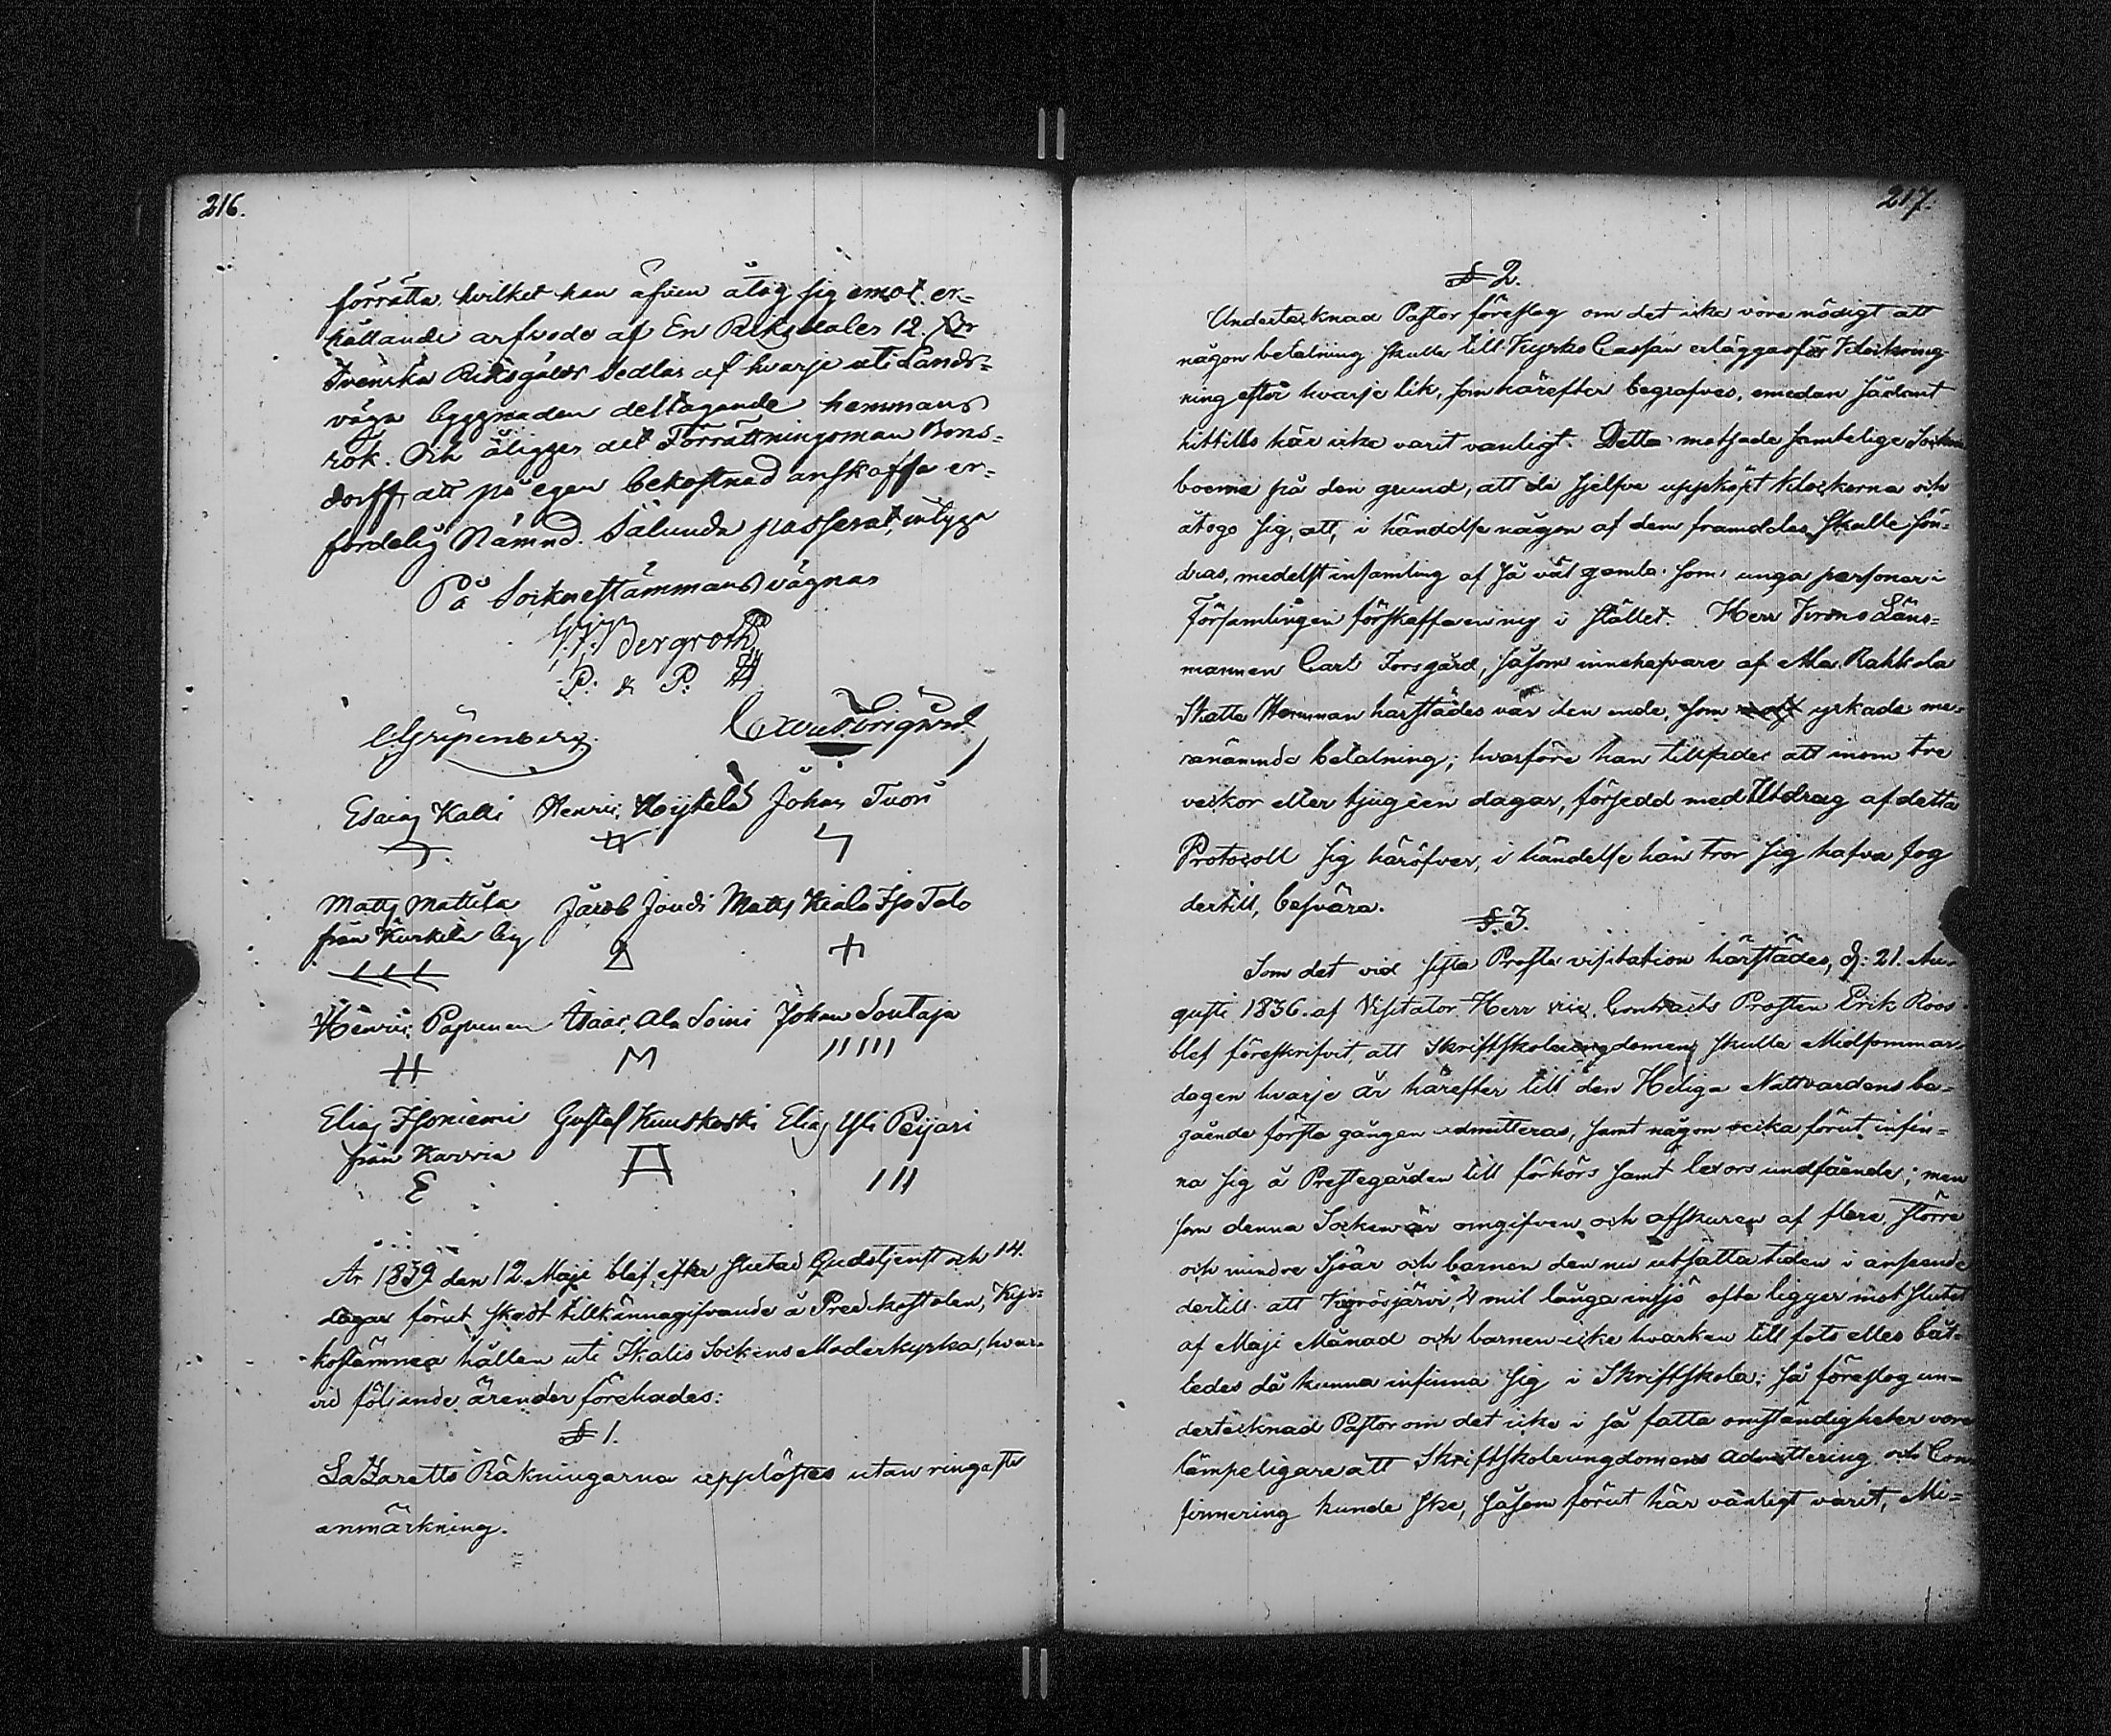 216.
förrätta, hvilket han äfven åtog sig emot er-
hållande arfvode af En Riksdaler 12. 
Svenska Riksgälds Sedlar af hvarje uti Lands-
väga byggnaden deltagande hemmans
rök. Och åligger det Förrättningsman Bons-
dorff, att på egen bekostnad anskaffa er-
forderlig Nämnd. Sålunda passerat, intyga
På Socknestämmans vägnar
Bergroth
P: & P:
C. Gripenberg.
Esaias Kalli Henric Höytelä Johan Tuori
Matts Mattila Jacob Joudi Matts Kiala Iso Talo
från Kurkela by
Henric Papunen Isaac Ala Soini Johan Soutaja
Elias Isoniemi Gustaf Kuuskoski Elias Yli Peijari
från Karvia
E
År 1839 den 12 Maji blef efter slutad Gudstjenst och 14.
dagar förut skedt tillkännagifvande å Predikostolen, Kyr-
kostämma hållen uti Ikalis Sockens Moderkyrka, hvar-
vid följande ärender förehades:
§ 1.
Lazaretts Räkningarna upplästes utan ringaste
anmärkning.
217.
§ 2.
Undertecknad Pastor föreslog om det icke vore nödigt att
någon betalning skulle till Kyrko Cassan erläggas för Klockring-
ning efter hvarje lik, som härefter begrafves, emedan sådant
hittills här icke varit vanligt. Detta motsade samtelige Sockne
boerne på den grund, att de sjelfve uppköpt klockorna och
åtogo sig, att, i händelse någon af dem framdeles skulle sön-
dras, medelst insamling af så väl gamla som unga personer i
Församlingen förskaffa en ny i stället. Herr Krono Läns-
mannen Carl Forsgård, såsom innehafvare af Ala Rahkola
Skatte Hemman härstädes var den ende, som yrkade me-
ranämnde betalning; hvarföre han tillsades att inom tre
veckor eller tjugeen dagar, försedd med Utdrag af detta
Protocoll sig häröfver, i händelse han tror sig hafva fog
dertill, besvära.
§. 3.
Som det vid sista Prosta visitation härstädes, d: 21. Au-
gusti 1836. af Visitator Herr vice Contracts Prosten Erik Roos
blef föreskrifvit, att Skriftskoleungdomen skulle Midsommars
dagen hvarje år härefter till den Heliga Nattvardens be-
gående första gången admitteras, samt någon vecka förut infin-
na sig å Prestegården till förhörs samt lexors undfående; men
som denna Socken är omgifven och afskuren af flere större
och mindre Sjöar och barnen den nu utsatta tiden i anseende
dertill att Kyrösjärvi, 4 mil långa insjö ofta ligger mot slutet
af Maji Månad och barnen icke hvarken till fots eller båt-
ledes då kunna infinna sig i Skriftskola; så föreslog un-
dertecknad Pastor om det icke i så fatta omständigheter vore
lämpeligare att Skriftskoleungdomens admittering och Con-
firmering kunde ske, såsom förut här vanligt varit, Mi-